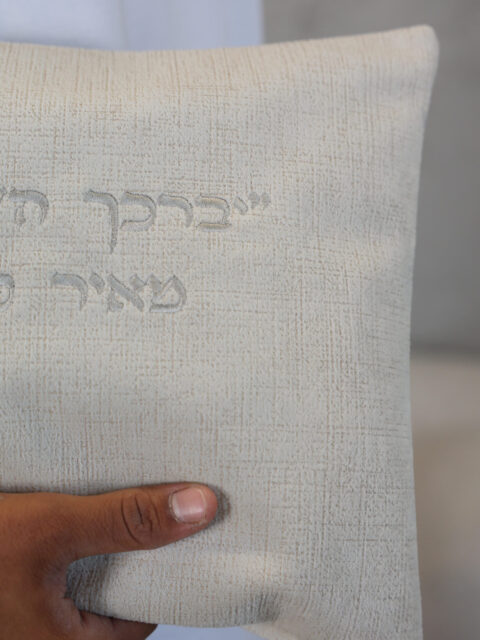 "יברכך
מאיר